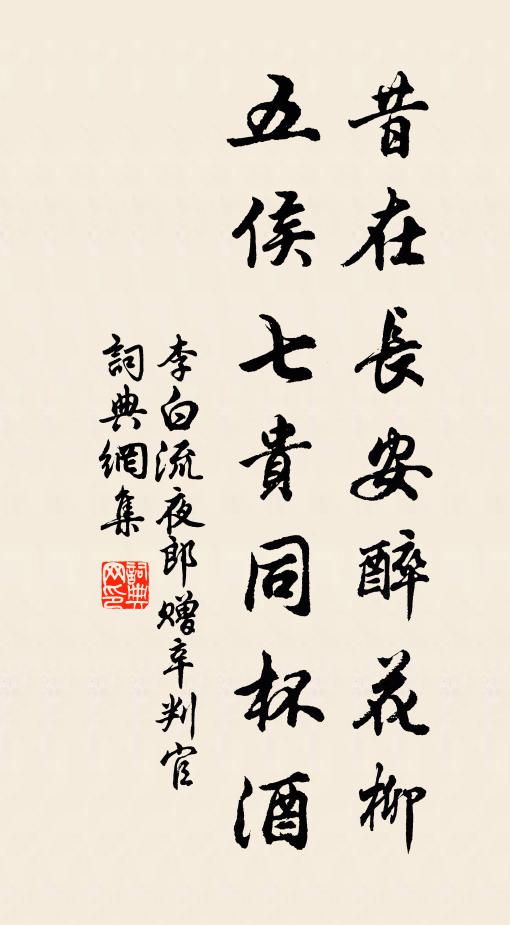 昔在長安醉花柳
五侯七貴同杯酒
李白流夜郎贈辛判官
詞典網集
詞典
网印